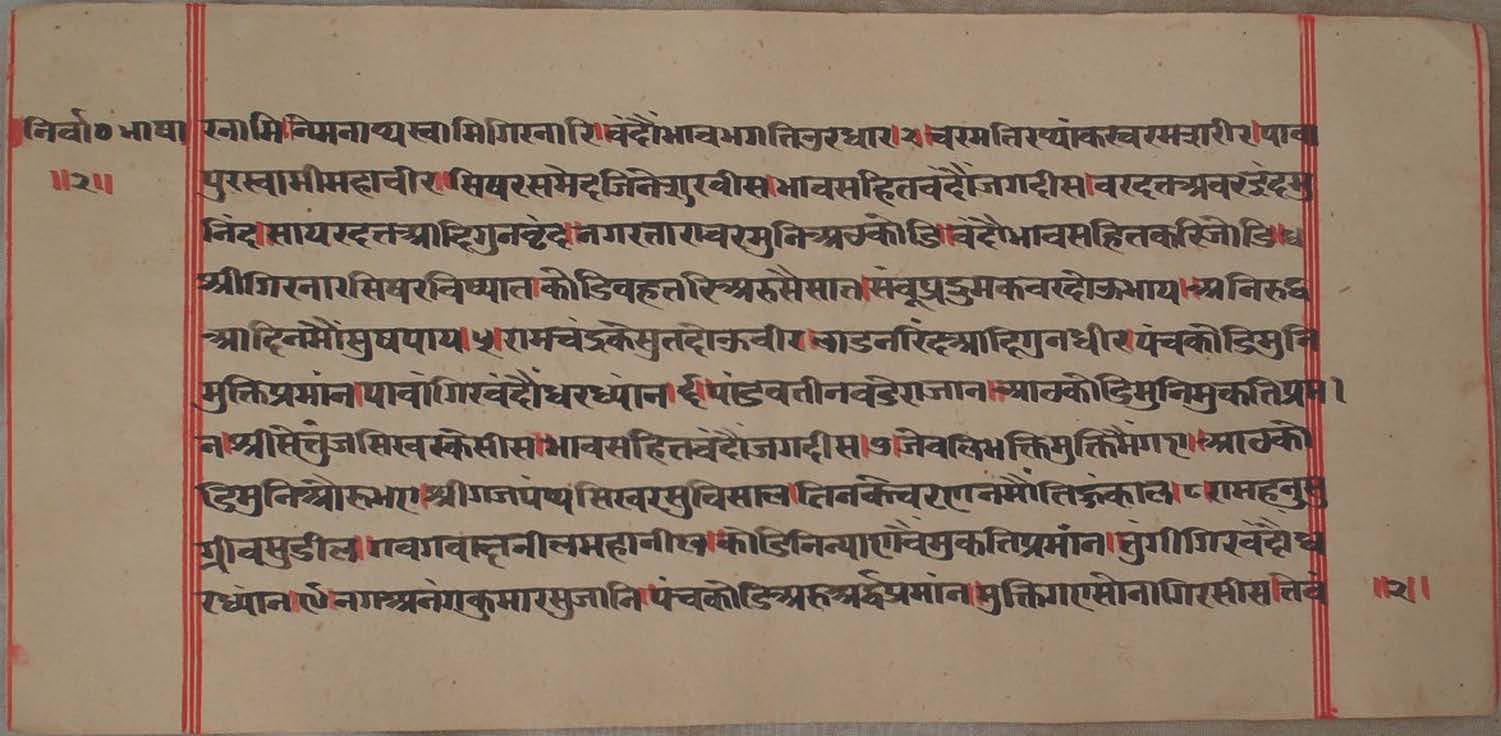 निर्वा० भाषा
॥२॥
रनामि।नेमनाथस्वामिगिरनारि।वंदौंभावभगतिउरधार।२।चरमतिरथ्यांकरचरमशरीर।पावा
पुरस्वामीमहावीर।सिषरसमेदजिनेसुरवीस।भावसहितवंदौंजगदीस।वरदत्तअवरइंदमु
निंद।सायरदत्तआदिगुनवृंद।नगरतारावरमुनिअठकोडि।वंदौभावसहितकरिजोडि।४
श्रीगिरनारसिषरविष्यात।कोडिवहत्तरिअरुसैसात।संबूप्रद्युमकवरदोऊभाय।अनिरुद्ध
आदिनमौंसुषपाय।५।रामचंद्रकेसुतदोऊवीर।लाडनरिंदआदिगुनधीर।पंचकोडिमुनि
मुक्तिप्रमांन।पावांगिरवंदौंधरध्यांन।६।पांडवतीनवडेराजान।आठकोडिमुनिमुकतिप्रमा
न।श्रीसेत्तुंजसिखरकेसीस।भावसहितवंदौंजगदीस।७।जेवलिभक्तिमुक्तिमैंगए।आठको
डिमुनिऔरूभए।श्रीगजपंथसिखरसुविसाल।तिनकेचरणनमौंतिहूंकाल।८।रामहनुसु
ग्रीवसुडील।गवगवाक्षनीलमहानील।कोडिनिन्याणवैमुकतिप्रमांन।तुंगीगिरवंदौंध
रध्यांन।९।नगअनंगकुमारसुजानि।पंचकोडिअरुअर्द्धप्रमांन।मुक्तिगएसोनागिरसीस।तेवं
॥२॥